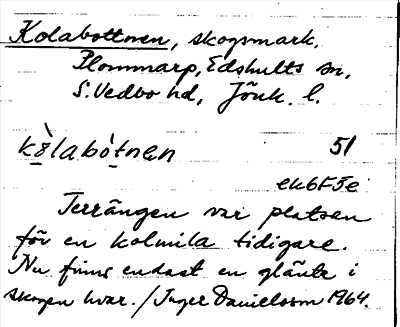 Kolabottnen, skogsmark,
Plommarp, Edshults sn,
S. Vedbo hd, Jönk. l.
kòlabòtnen 51
ek6F5e
Terrängen var platsen
för en kolmila tidigare.
Nu finns endast en glänta i
skogen kvar. / Inger Danielsson 1964.